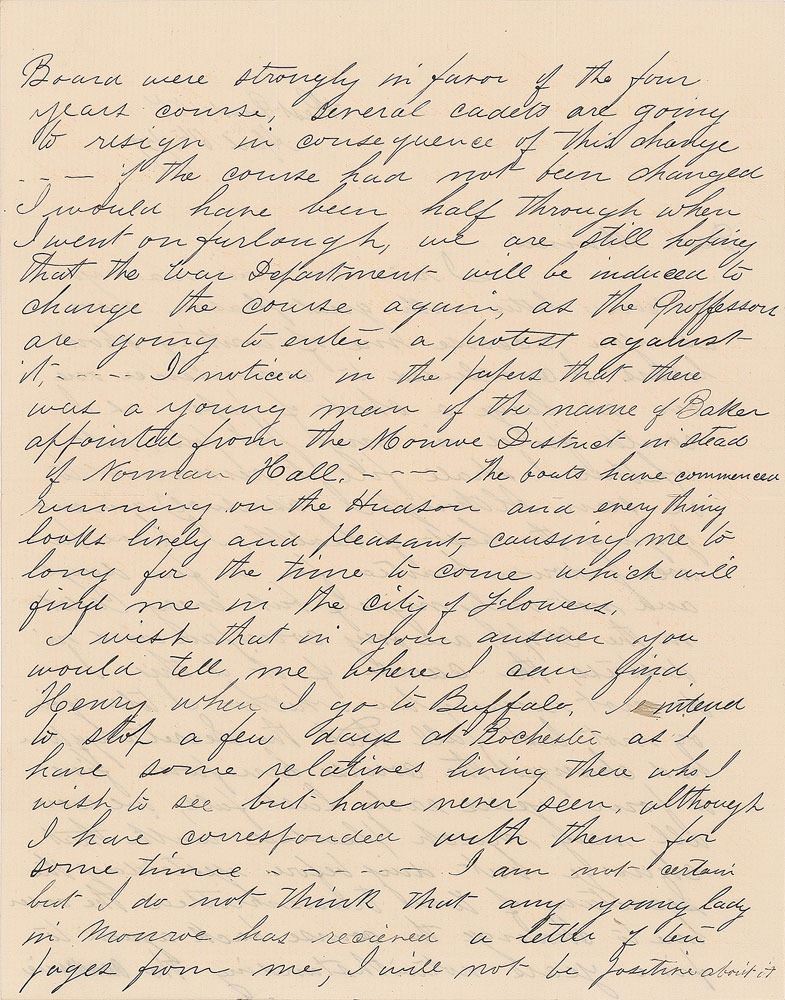 Board were strongly in favor of the four
years course, several cadets are going
to resign in consequence of this change
- - - if the course had not been changed
I would have been half through when
I went on furlough, we are still hoping
that the War Department will be induced to
change the course again, as the Proffessors
are going to enter a protest against
it, - - - - I noticed in the papers that there
was a young man of the name of Baker
appointed from the Monroe District in stead
of Norman Hall. - - - The boats have commenced
running on the Hudson and every thing
looks lively and pleasant, causing me to
long for the time to come which will
find me in the city of Flowers.
I wish that in your answer you
would tell me where I can find
Henry when I go to Buffalo, I intend
to stop a few days at Rochester as I
have some relatives living there who I
wish to see but have never seen, although
I have corresponded with them for
some time - - - - - - I am not certain
but I do not think that any young lady
in Monroe has recieved a letter of ten
pages from me, I will not be positive about it